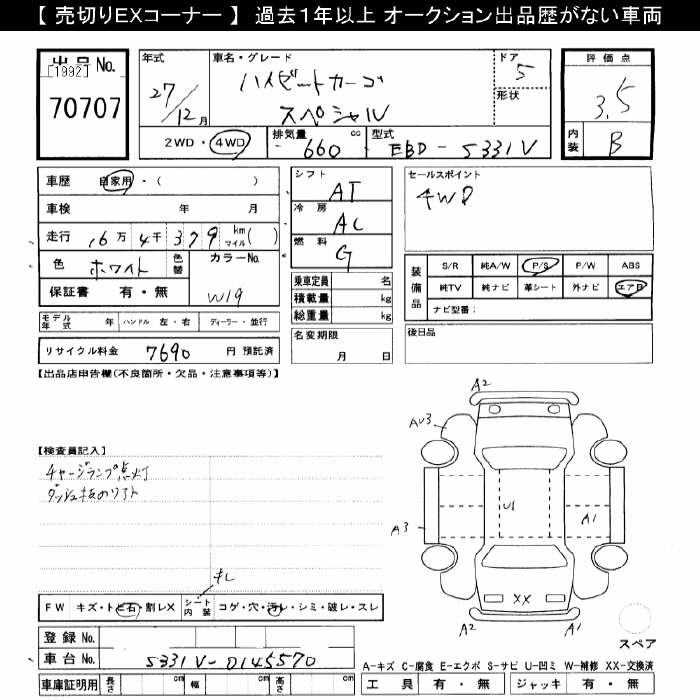 【 売切りEXコーナー 】 過去1年以上 オークション出品歴がない車両
出品 No.
[1992]
70707
年式
27/12月
車名・グレード
ハイゼットカーゴ
スペシャル
ドア
5
形状
評価点
3.5
内装
B
2WD・4WD
排気量 660 cc
型式 EBD-S331V
車歴 自家用・( )
車検 年 月
走行 16万4千379 km マイル( )
色 ホワイト
色替
カラーNo.
W19
保証書 有・無
シフト AT
冷房 AC
燃料 G
乗車定員 名
積載量 kg
総重量 kg
名変期限
月 日
セールスポイント
4WD
装備品
S/R 純A/W P/S P/W ABS
純TV 純ナビ 革シート 外ナビ エアB
ナビ型番:
後日品
モデル年式 年 ハンドル 左・右 ディーラー・並行
リサイクル料金 7690 円 預託済
【出品店申告欄(不良箇所・欠品・注意事項等)】
【検査員記入】
チャージランプ点灯
キレ
FW キズ・トビ石・割レX シート内装 コゲ・穴・汚レ・シミ・破レ・スレ
登録 No.
車台 No. S331V-0145570
車庫証明用 長さ cm 幅 cm 高さ cm
A2
AU3
A3
U1
A1
XX
A2
A1
スペア
A-キズ C-腐食 E-エクボ S-サビ U-凹ミ W-補修 XX-交換済
工具 有・無 ジャッキ 有・無